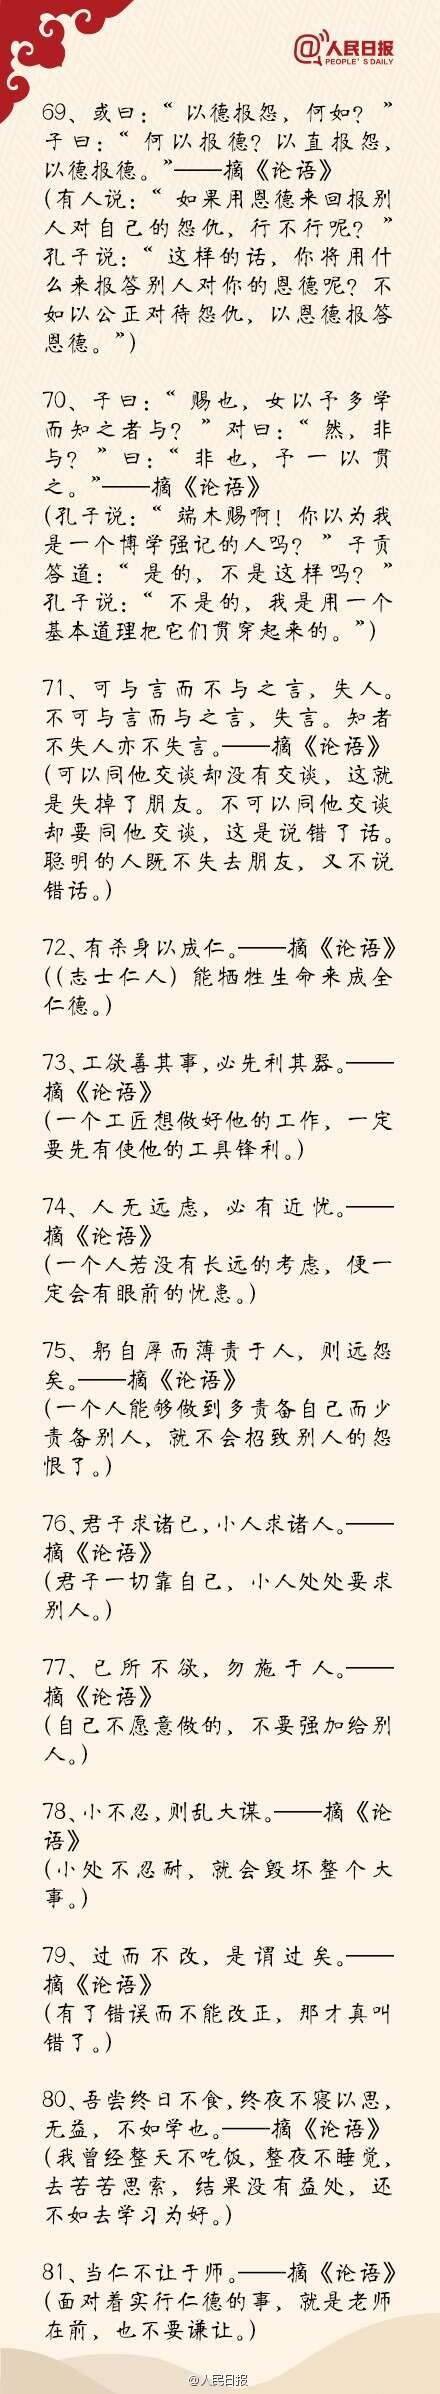 @人民日报
PEOPLE'S DAILY
69、或曰：“以德报怨，何如？”
子曰：“何以报德？以直报怨，
以德报德。”——摘《论语》
(有人说：“如果用恩德来回报别
人对自己的怨仇，行不行呢？”
孔子说：“这样的话，你将用什
么来报答别人对你的恩德呢？不
如以公正对待怨仇，以恩德报答
恩德。”)
70、子曰：“赐也，女以予多学
而知之者与？”对曰：“然，非
与？”曰：“非也，予一以贯
之。”——摘《论语》
(孔子说：“端木赐啊！你以为我
是一个博学强记的人吗？”子贡
答道：“是的，不是这样吗？”
孔子说：“不是的，我是用一个
基本道理把它们贯穿起来的。”)
71、可与言而不与之言，失人。
不可与言而与之言，失言。知者
不失人亦不失言。——摘《论语》
(可以同他交谈却没有交谈，这就
是失掉了朋友。不可以同他交谈
却要同他交谈，这是说错了话。
聪明的人既不失去朋友，又不说
错话。)
72、有杀身以成仁。——摘《论语》
((志士仁人）能牺牲生命来成全
仁德。)
73、工欲善其事，必先利其器。——
摘《论语》
(一个工匠想做好他的工作，一定
要先有使他的工具锋利。)
74、人无远虑，必有近忧。——
摘《论语》
(一个人若没有长远的考虑，便一
定会有眼前的忧患。)
75、躬自厚而薄责于人，则远怨
矣。——摘《论语》
(一个人能够做到多责备自己而少
责备别人，就不会招致别人的怨
恨了。)
76、君子求诸己，小人求诸人。——
摘《论语》
(君子一切靠自己，小人处处要求
别人。)
77、己所不欲，勿施于人。——
摘《论语》
(自己不愿意做的，不要强加给别
人。)
78、小不忍，则乱大谋。——摘《论
语》
(小处不忍耐，就会毁坏整个大
事。)
79、过而不改，是谓过矣。——
摘《论语》
(有了错误而不能改正，那才真叫
错了。)
80、吾尝终日不食，终夜不寝以思，
无益，不如学也。——摘《论语》
(我曾经整天不吃饭，整夜不睡觉，
去苦苦思索，结果没有益处，还
不如去学习为好。)
81、当仁不让于师。——摘《论语》
(面对着实行仁德的事，就是老师
在前，也不要谦让。)
@人民日报